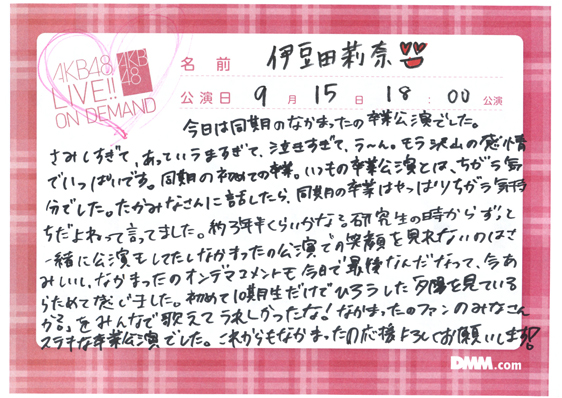 AKB48
LIVE!!
ON DEMAND
AKB
48
名前 伊豆田莉奈
公演日 9月15日 18:00公演
今日は同期のなかまったの卒業公演でした。
さみしすぎて、あっというまぎて、泣きすぎて、う〜ん。モう沢山の感情
でいっぱいです。同期の初めての卒業。いつもの卒業公演とは、ちがう気
分でした。たかみなさんに話したら、同期の卒業はやっぱりちがう気持
ちだよねって言ってました。約3年半くらいかなる研究生の時からずっと
一緒に公演もしてたしなかまったの公演での笑顔を見れないのはさ
みしいし、なかまったのオンデマコメントも今日で最後なんだなって、今あ
らためて感じました。初めて10期生だけでひろうした夕陽を見ている
か?をみんなで歌えてうれしかったな!なかまったのファンのみなさん
ステキな卒業公演でした。これからもなかまったの応援よろしくお願いします!
DMM.com